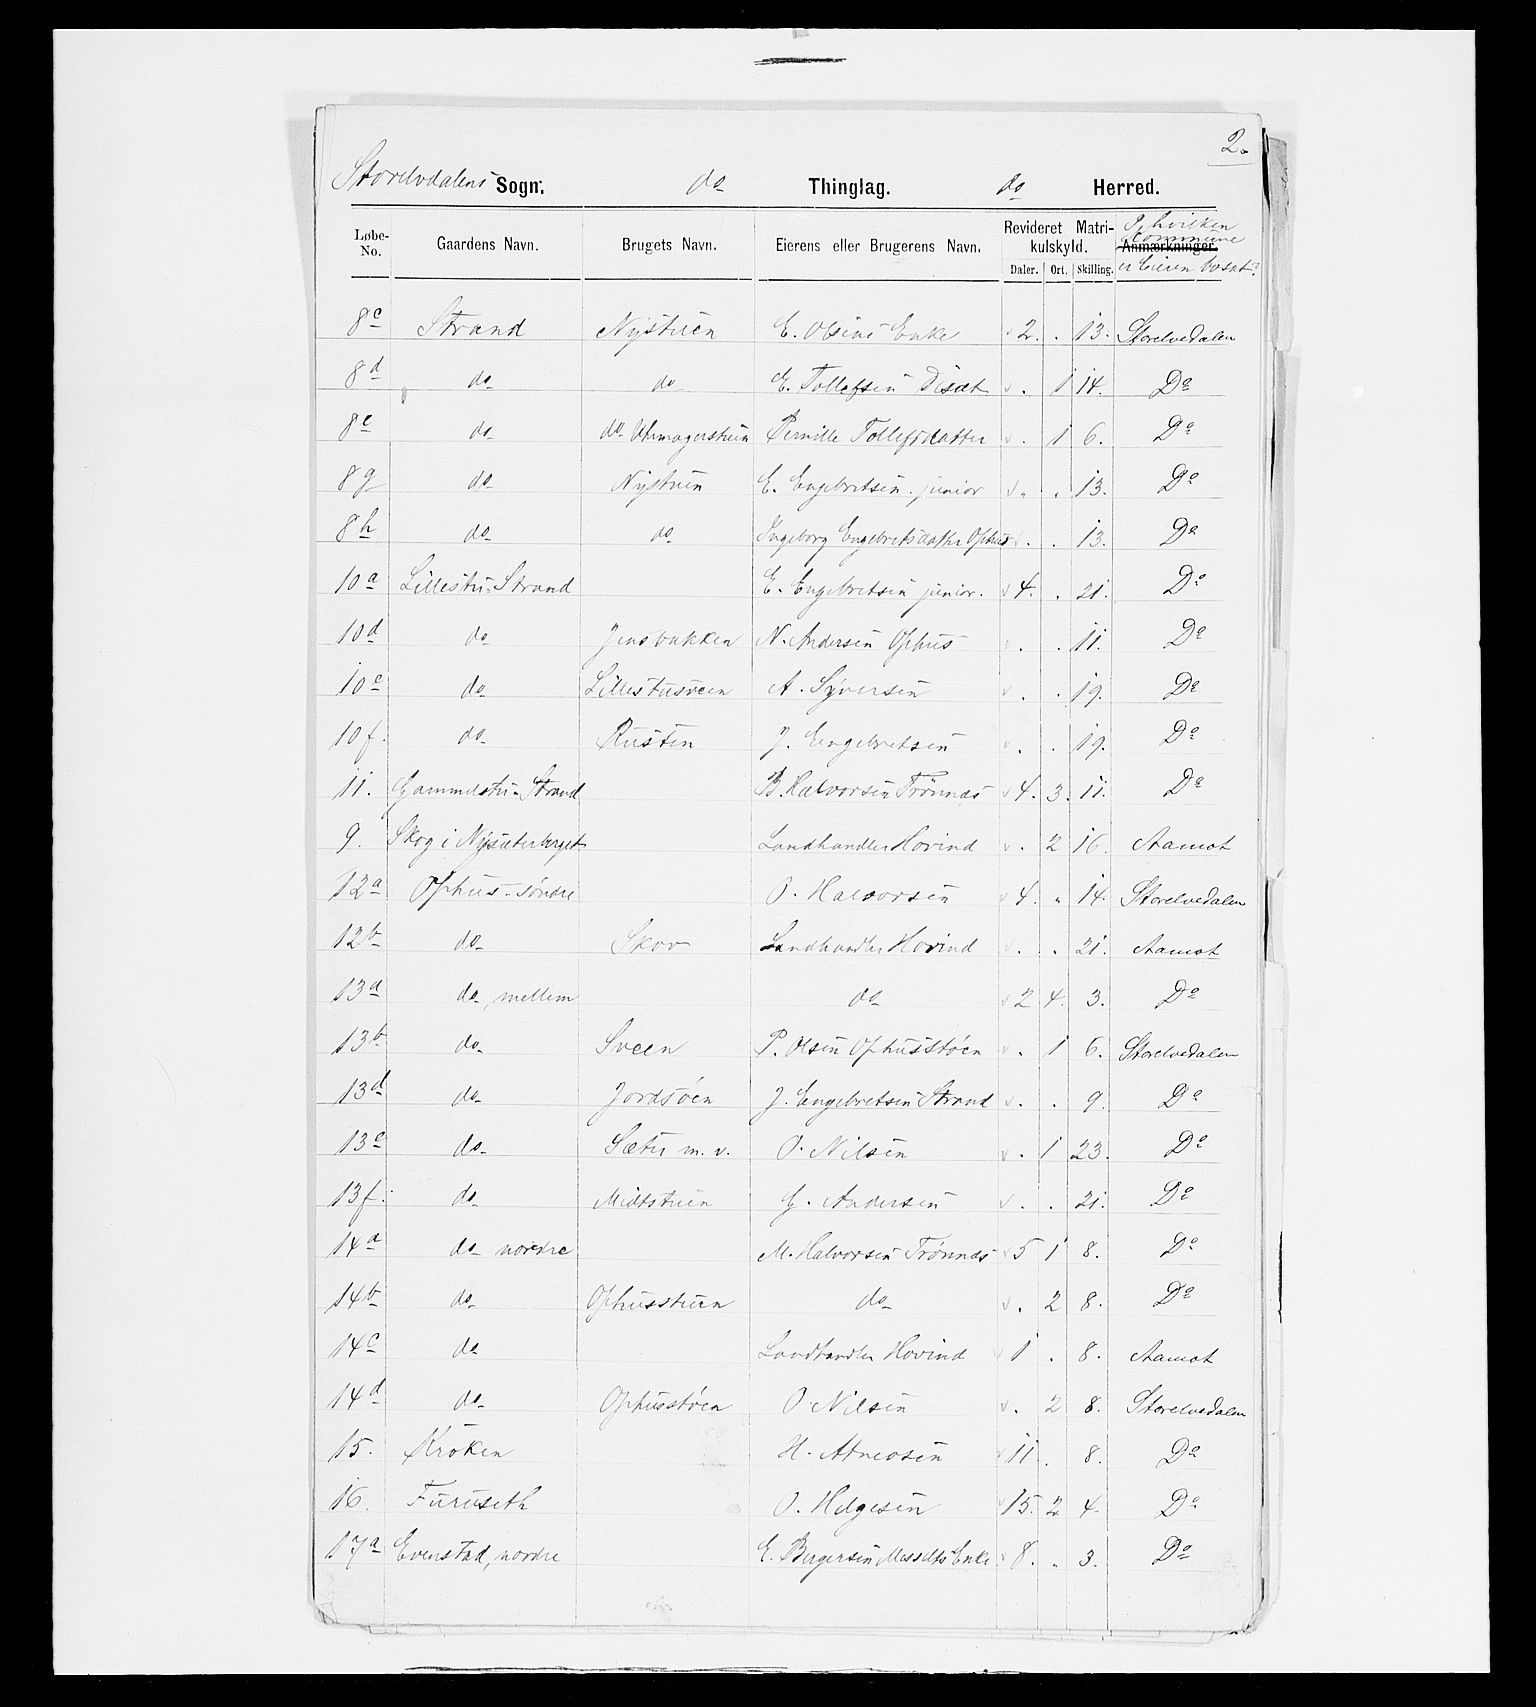 2.
Storelvdalens Sogn. do Thinglag. do Herred.
Løbe-No. Gaardens Navn. Brugets Navn. Eierens eller Brugerens Navn. Revideret Matrikulskyld. Daler. Ort. Skilling. Anmærkninger. I hvilken Commune er Eieren bosat?
8c Strand Nystuen E. Olsens Enke 2. . 13. Storelvedalen
8d do do E. Tollefsen Disæt . 1 14. Do
8e do do Uhrmagerstuen Pernille Tollefsdatter . 1 6. Do
8g do Nystuen E. Engebretsen junior . . 13. Do
8h do do Ingeborg Engebretsdatter Ophus . . 13. Do
10a Lillestu-Strand E. Engebretsen junior. 4. . 21. Do
10d do Jensbakken N. Andersen Ophus . . 11. Do
10e do Lillestusveen A. Syversen . . 19. Do
10f. do Rusten J. Engebretsen . . 19. Do
11. Gammelstu-Strand B. Halvorsen Trønnæs 4. 3. 11. Do
9. Skog i Nysæterberget Landhandler Hovind . 2 16. Aamot
12a Ophus-søndre O. Halvorsen 4. . 14. Storelvedalen
12b do Skov Landhandler Hovind . . 21. Aamot
13a do, mellem do 2 4. 3. Do
13b do Sveen P. Olsen Ophusstøen . 1 6. Storelvedalen
13d do Jordsøen J. Engebretsen Strand . . 9. Do
13e do Sæter m. v. O. Nilsen . 1 23. Do
13f. do Midtstuen G. Andersen . . 21. Do
14a do nordre M. Halvorsen Trønnæs 5 1 8. Do
14b do Ophusstuen do . 2 8. Do
14c do Landhandler Hovind 1 . 8. Aamot
14d do Ophusstøen O. Nilsen . 2 8. Storelvedalen
15. Kroken H. Atneosen 11 . 8. Do
16. Furuseth O. Helgesen 15. 2 4. Do
17a Evenstad, nordre E. Bergersen Messelts Enke 8. . 3. Do